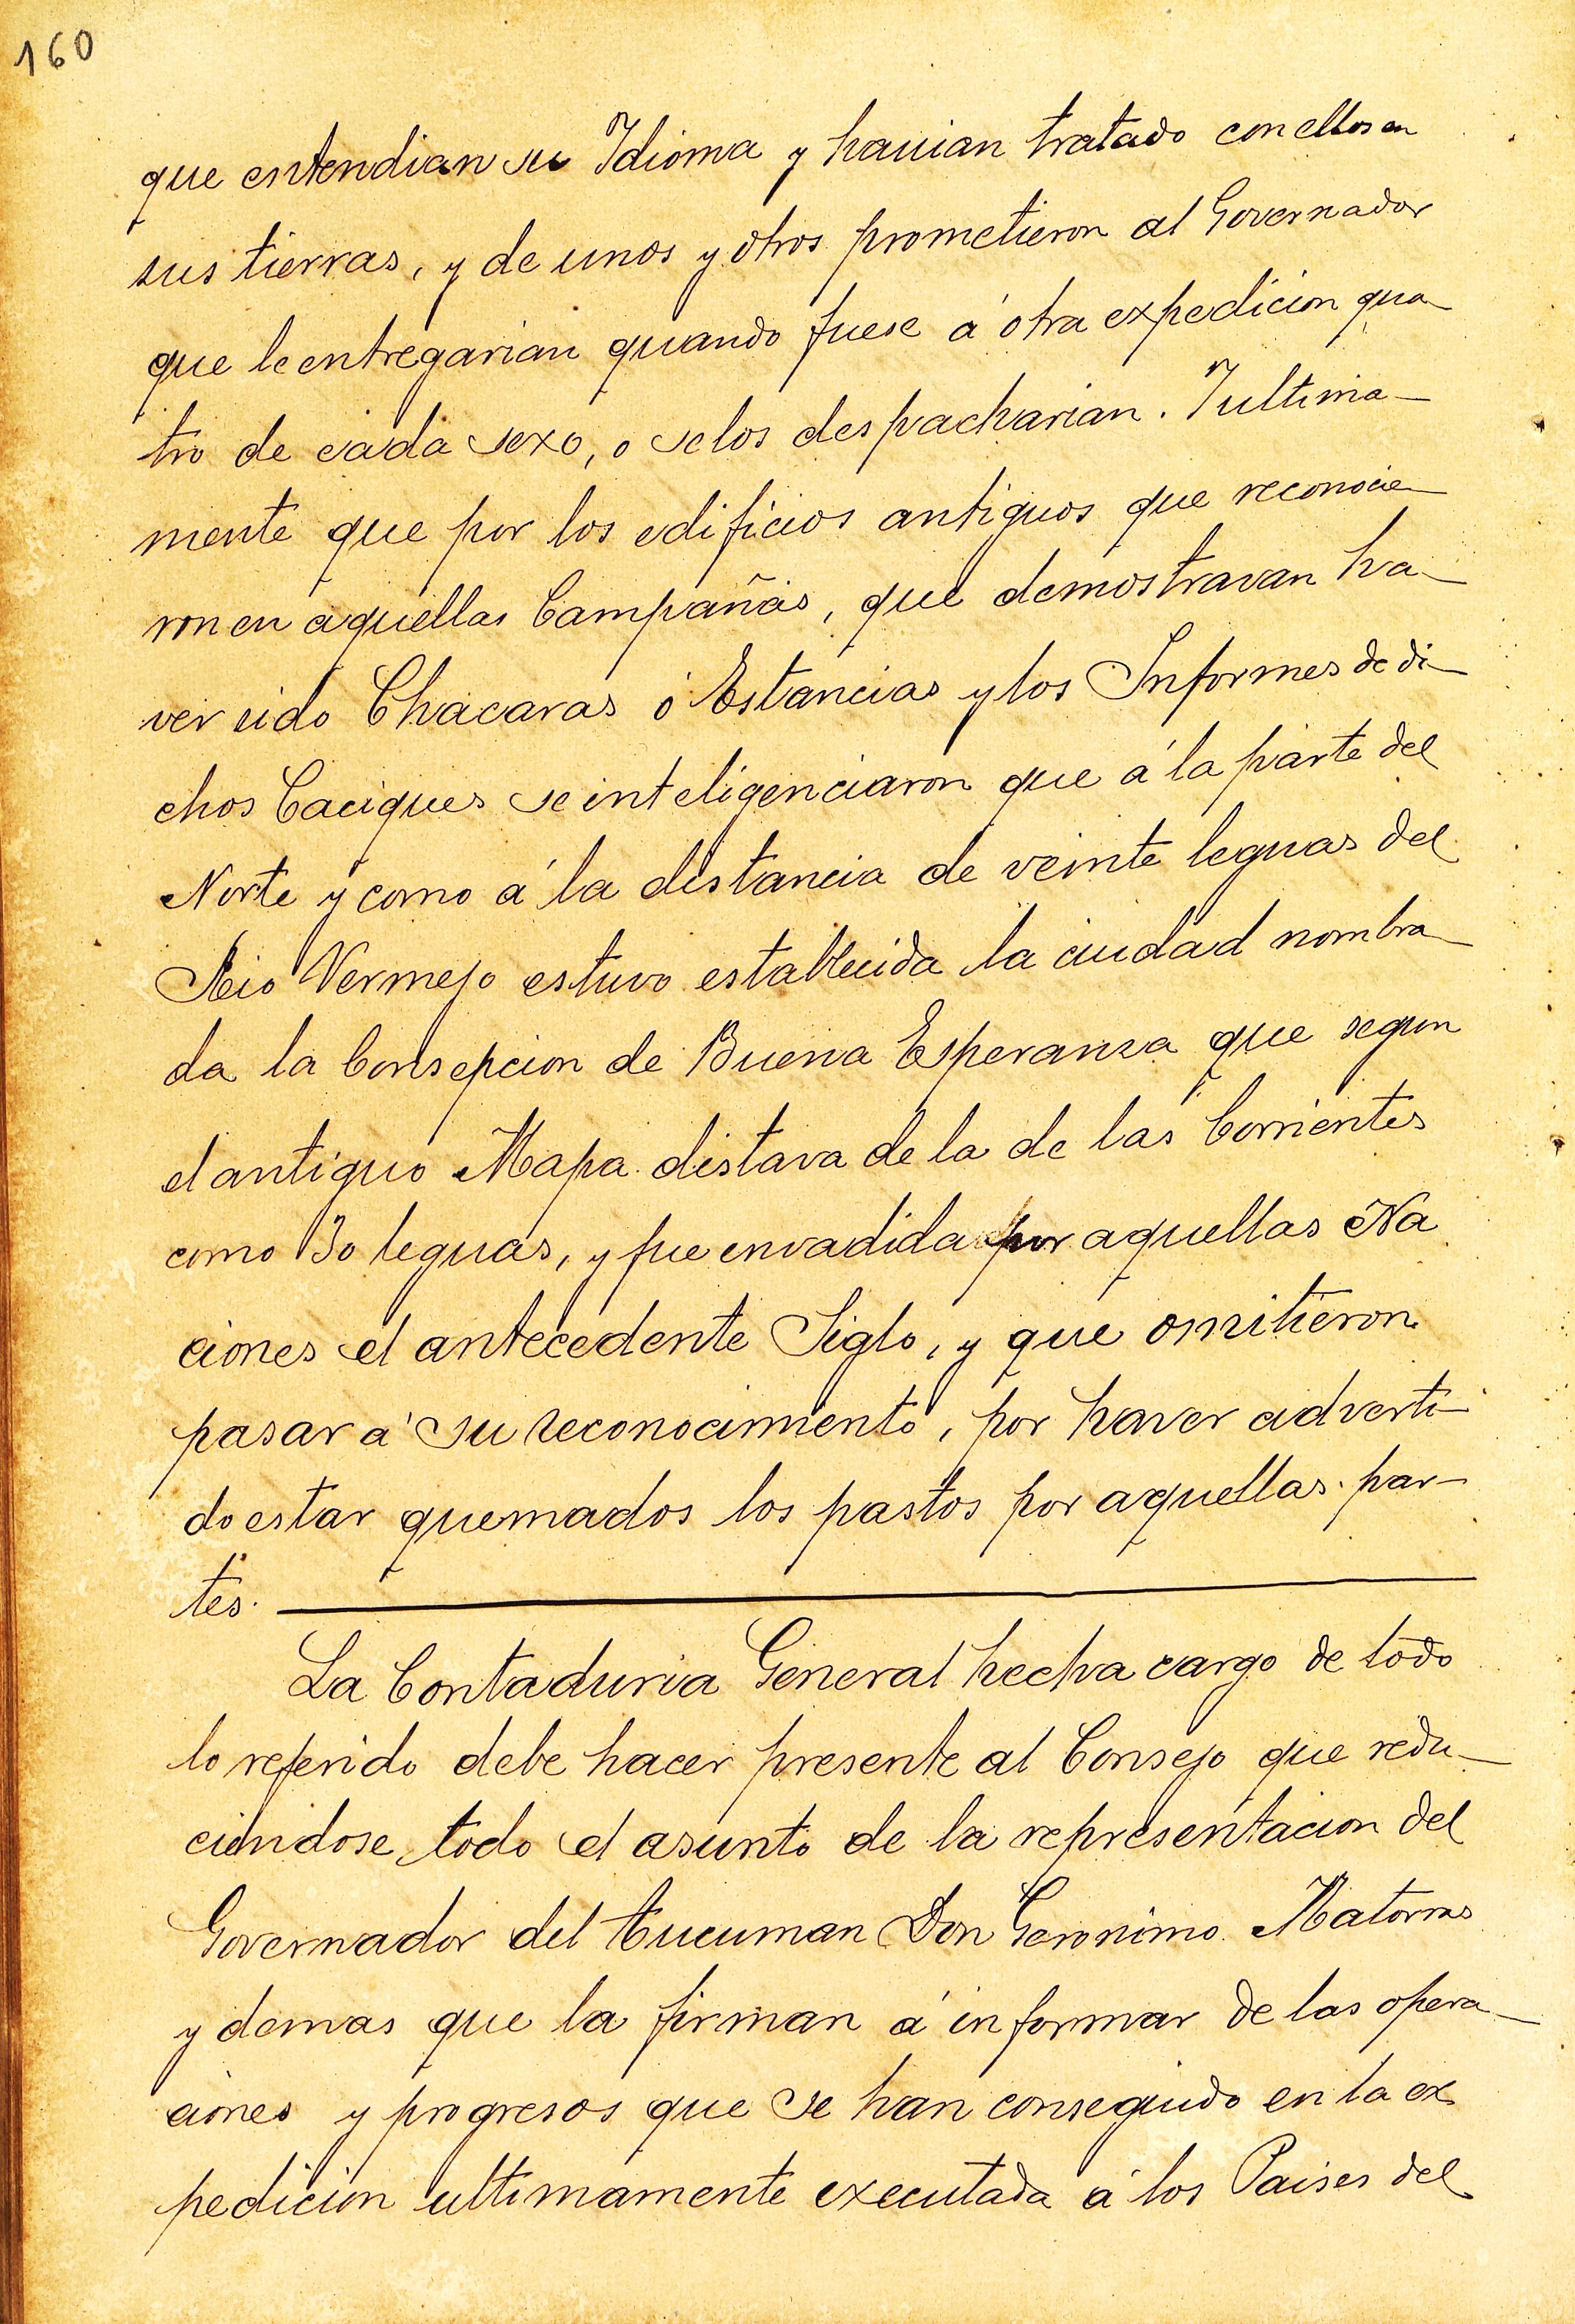 160
que entendian su Idioma y hauian tratado con ellos en
sus tierras, y de unos y otros prometieron al Governador
que le entregarian quando fuese á otra expedicion qua-
tro de cada sexo, o se los despacharian. Y ultima-
mente que por los edificios antiguos que reconocie-
ron en aquellas Campañas, que demostravan ha-
ver sido Chacaras ó Estancias y los Informes de di-
chos Caciques se inteligenciaron que á la parte del
Norte y como á la distancia de veinte leguas del
Rio Vermejo estuvo establecida la ciudad nombra-
da la Consepcion de Buena Esperanza que segun
el antiguo Mapa distava de la de las Corrientes
como 30 leguas, y fue envadida por aquellas Na
ciones el antecedente Siglo, y que omitieron
pasar á su reconocimiento, por haver adverti-
do estar quemados los pastos por aquellas par-
tes.
La Contaduria General hecha cargo de todo
lo referido debe hacer presente al Consejo que redu-
ciendose todo el asunto de la representacion del
Governador del Tucuman Don Geronimo Matorras
y demas que la firman á informar de las opera-
ciones y progresos que se han conseguido en la ex
pedicion ultimamente executada á los Paises del